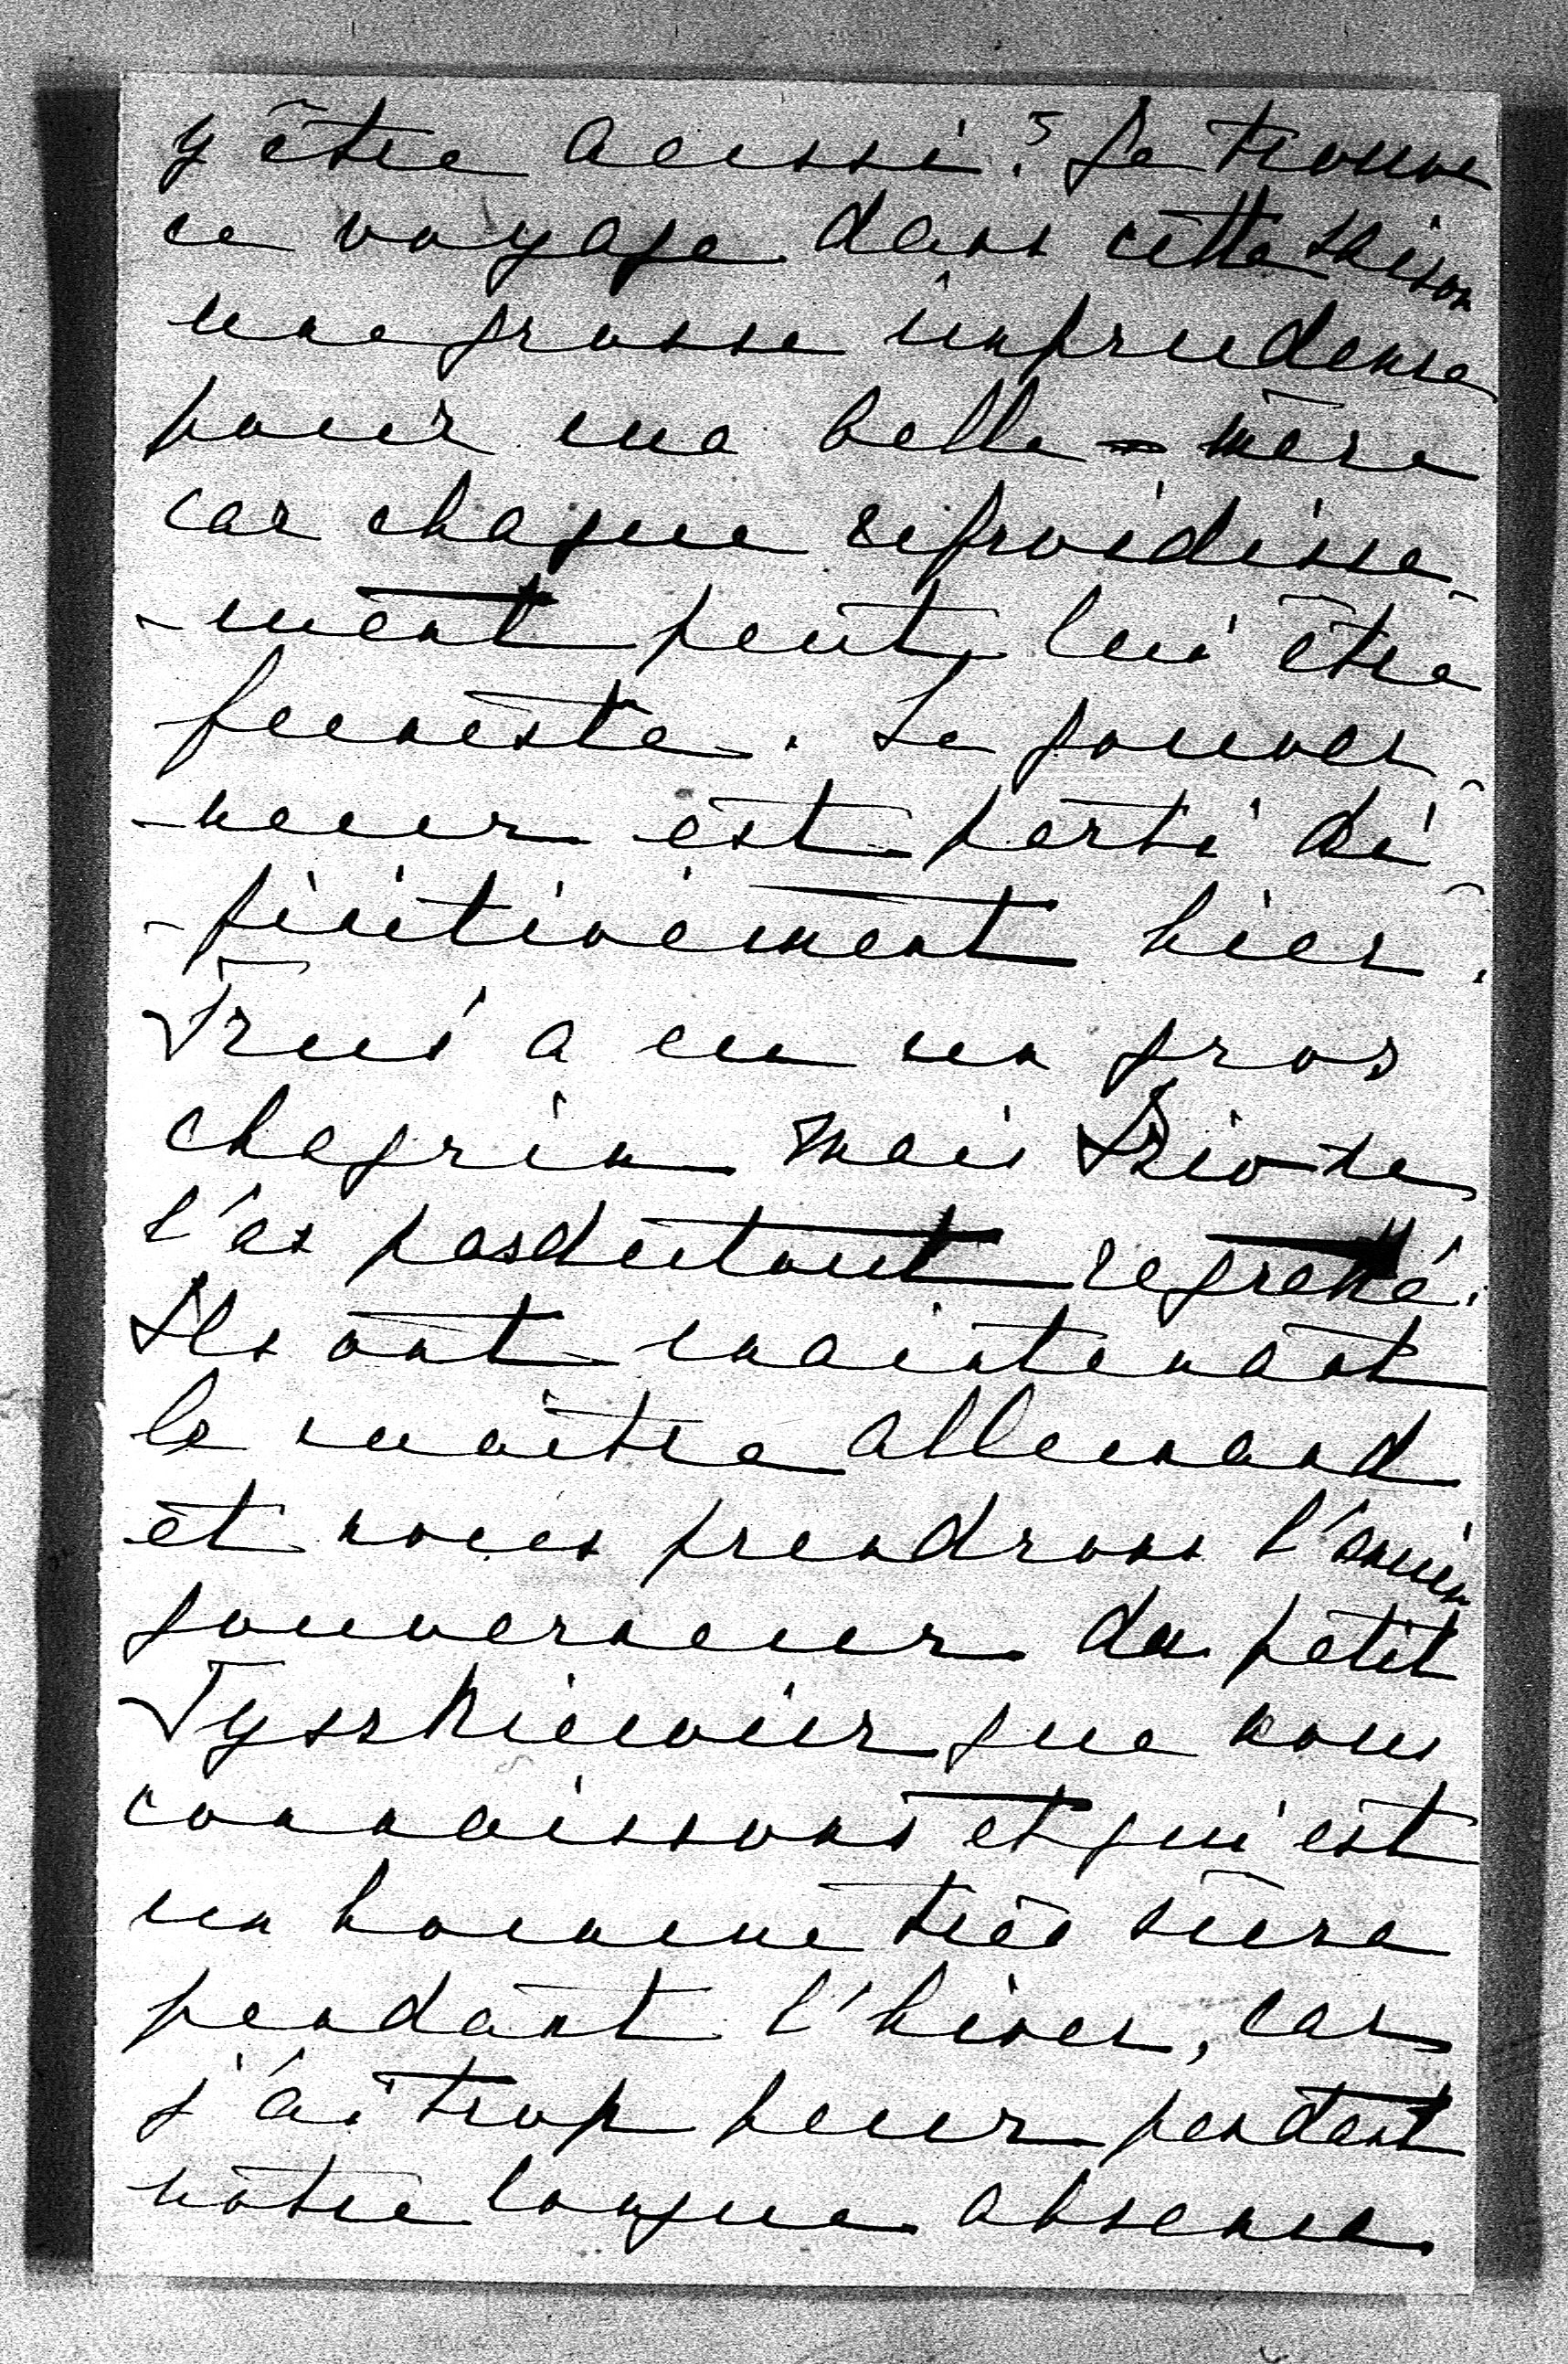 y être aussi? Je trouve
ce voyage dans cette saison
une grosse imprudence
pour ma belle-mère
car chaque refroidisse-
-ment peut lui être
funeste. Le gouver-
-neur est parti dé-
-finitivement hier.
a eu un gros
chagrin mais ne
l'a pas du tout regretté.
Ils ont maintenant
le maître allemand
et nous prendrons l'ancien
gouverneur du petit
que nous
connaissons et qui est
un homme très sûre
pendant l'hiver, car
j'ai trop peur pendant
notre longue absence